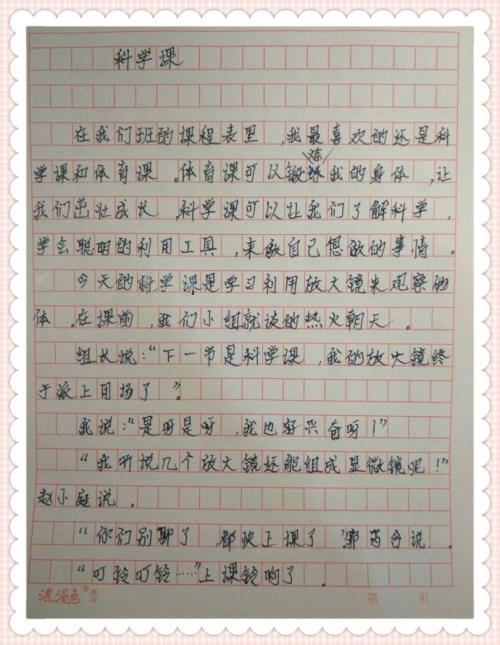 科学课
在我们班的课程表里，我最喜欢的还是科
学课和体育课。体育课可以锻炼我的身体，让
我们茁壮成长，科学课可以让我们了解科学，
学会聪明的利用工具，来做自己想做的事情。
今天的科学课是学习利用放大镜来观察物
体。在课前，我们小组就谈的热火朝天。
组长说：“下一节是科学课，我的放大镜终
于派上用场了”。
我说：“是呀是呀，我也好兴奋呀！”
“我听说几个放大镜还能组成显微镜呢！”
赵小庭说。
“你们别聊了，都快上课了”郭芮多说。
“叮铃叮铃……”上课铃响了。
第 页